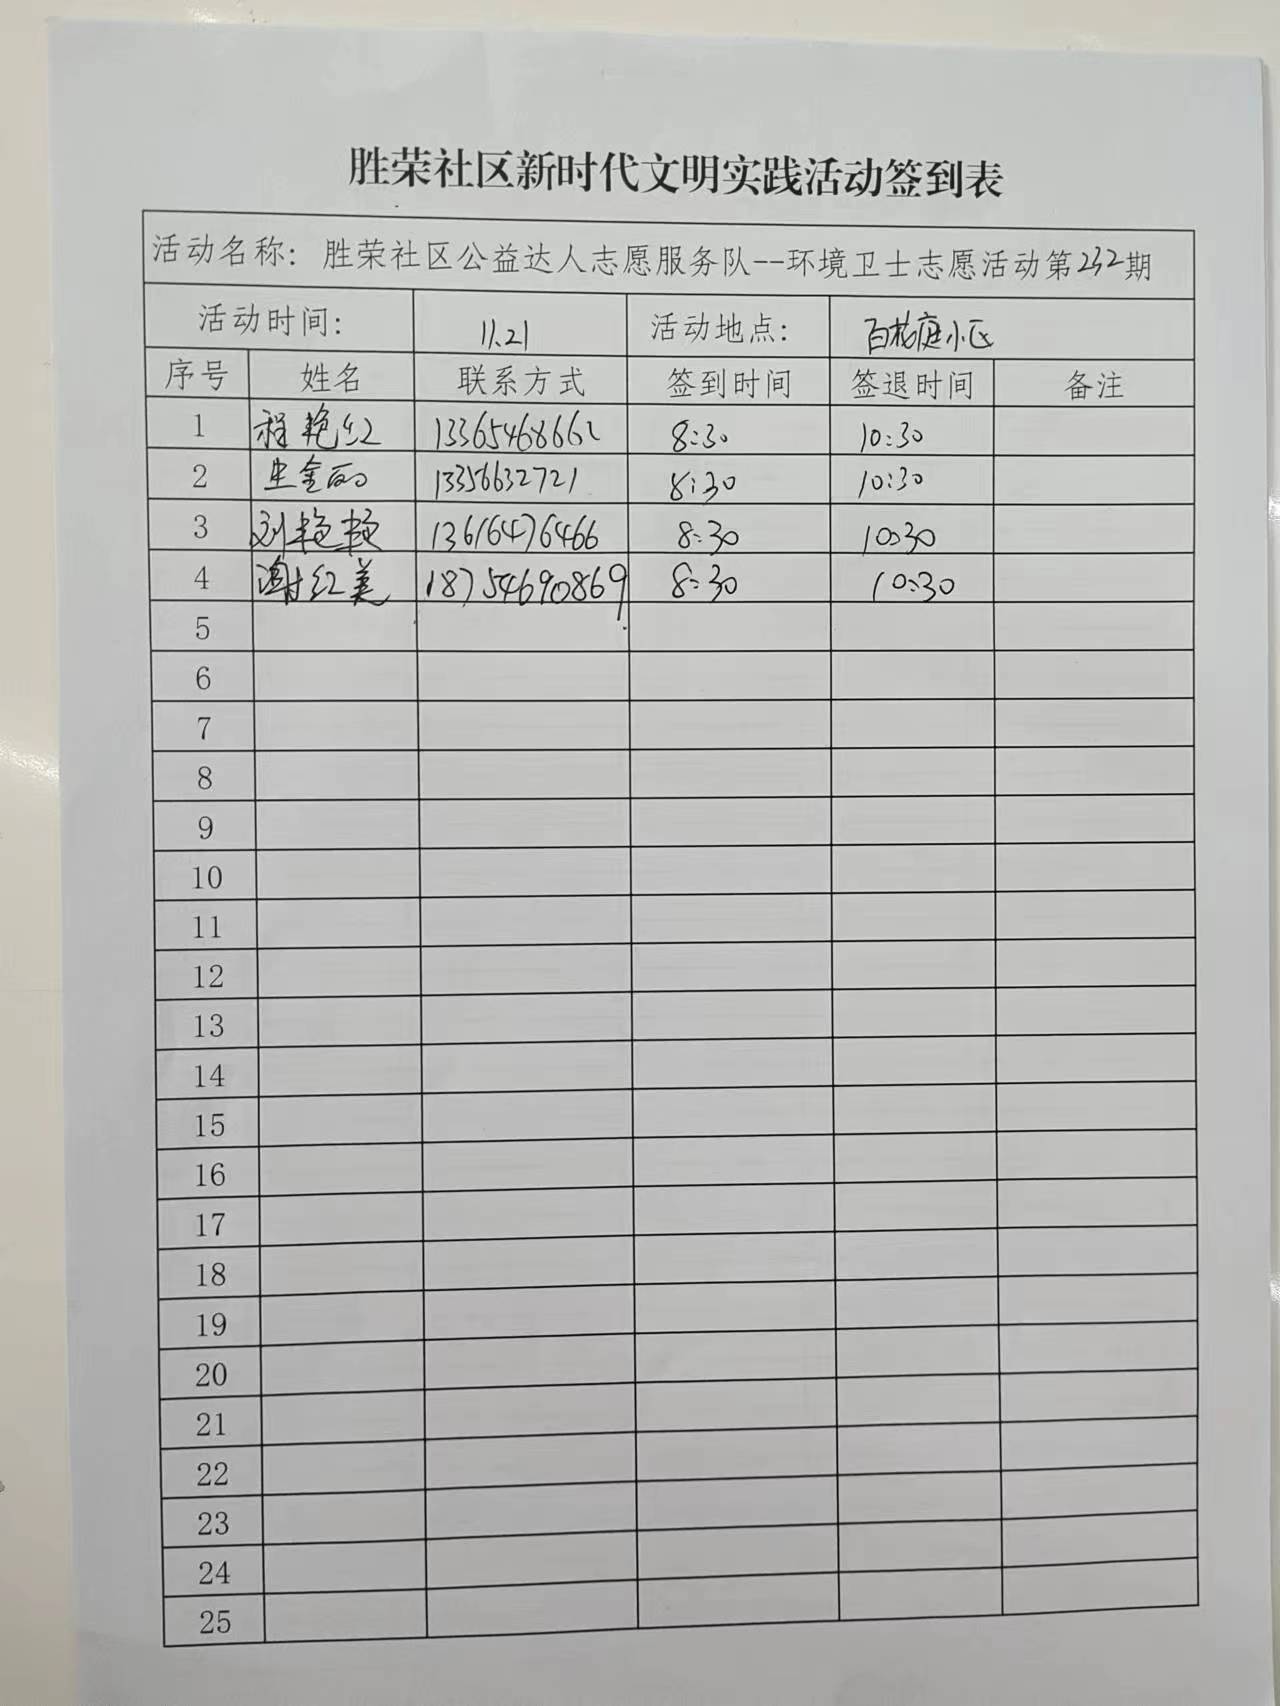 胜荣社区新时代文明实践活动签到表
活动名称：胜荣社区公益达人志愿服务队--环境卫士志愿活动第232期
活动时间： 11.21 活动地点： 百花庭小区
序号 姓名 联系方式 签到时间 签退时间 备注
1 程艳红 13365468662 8:30 10:30
2 生金丽 13356632721 8:30 10:30
3 刘艳艳 13616476466 8:30 10:30
4 谢红美 18754690869 8:30 10:30
5
6
7
8
9
10
11
12
13
14
15
16
17
18
19
20
21
22
23
24
25